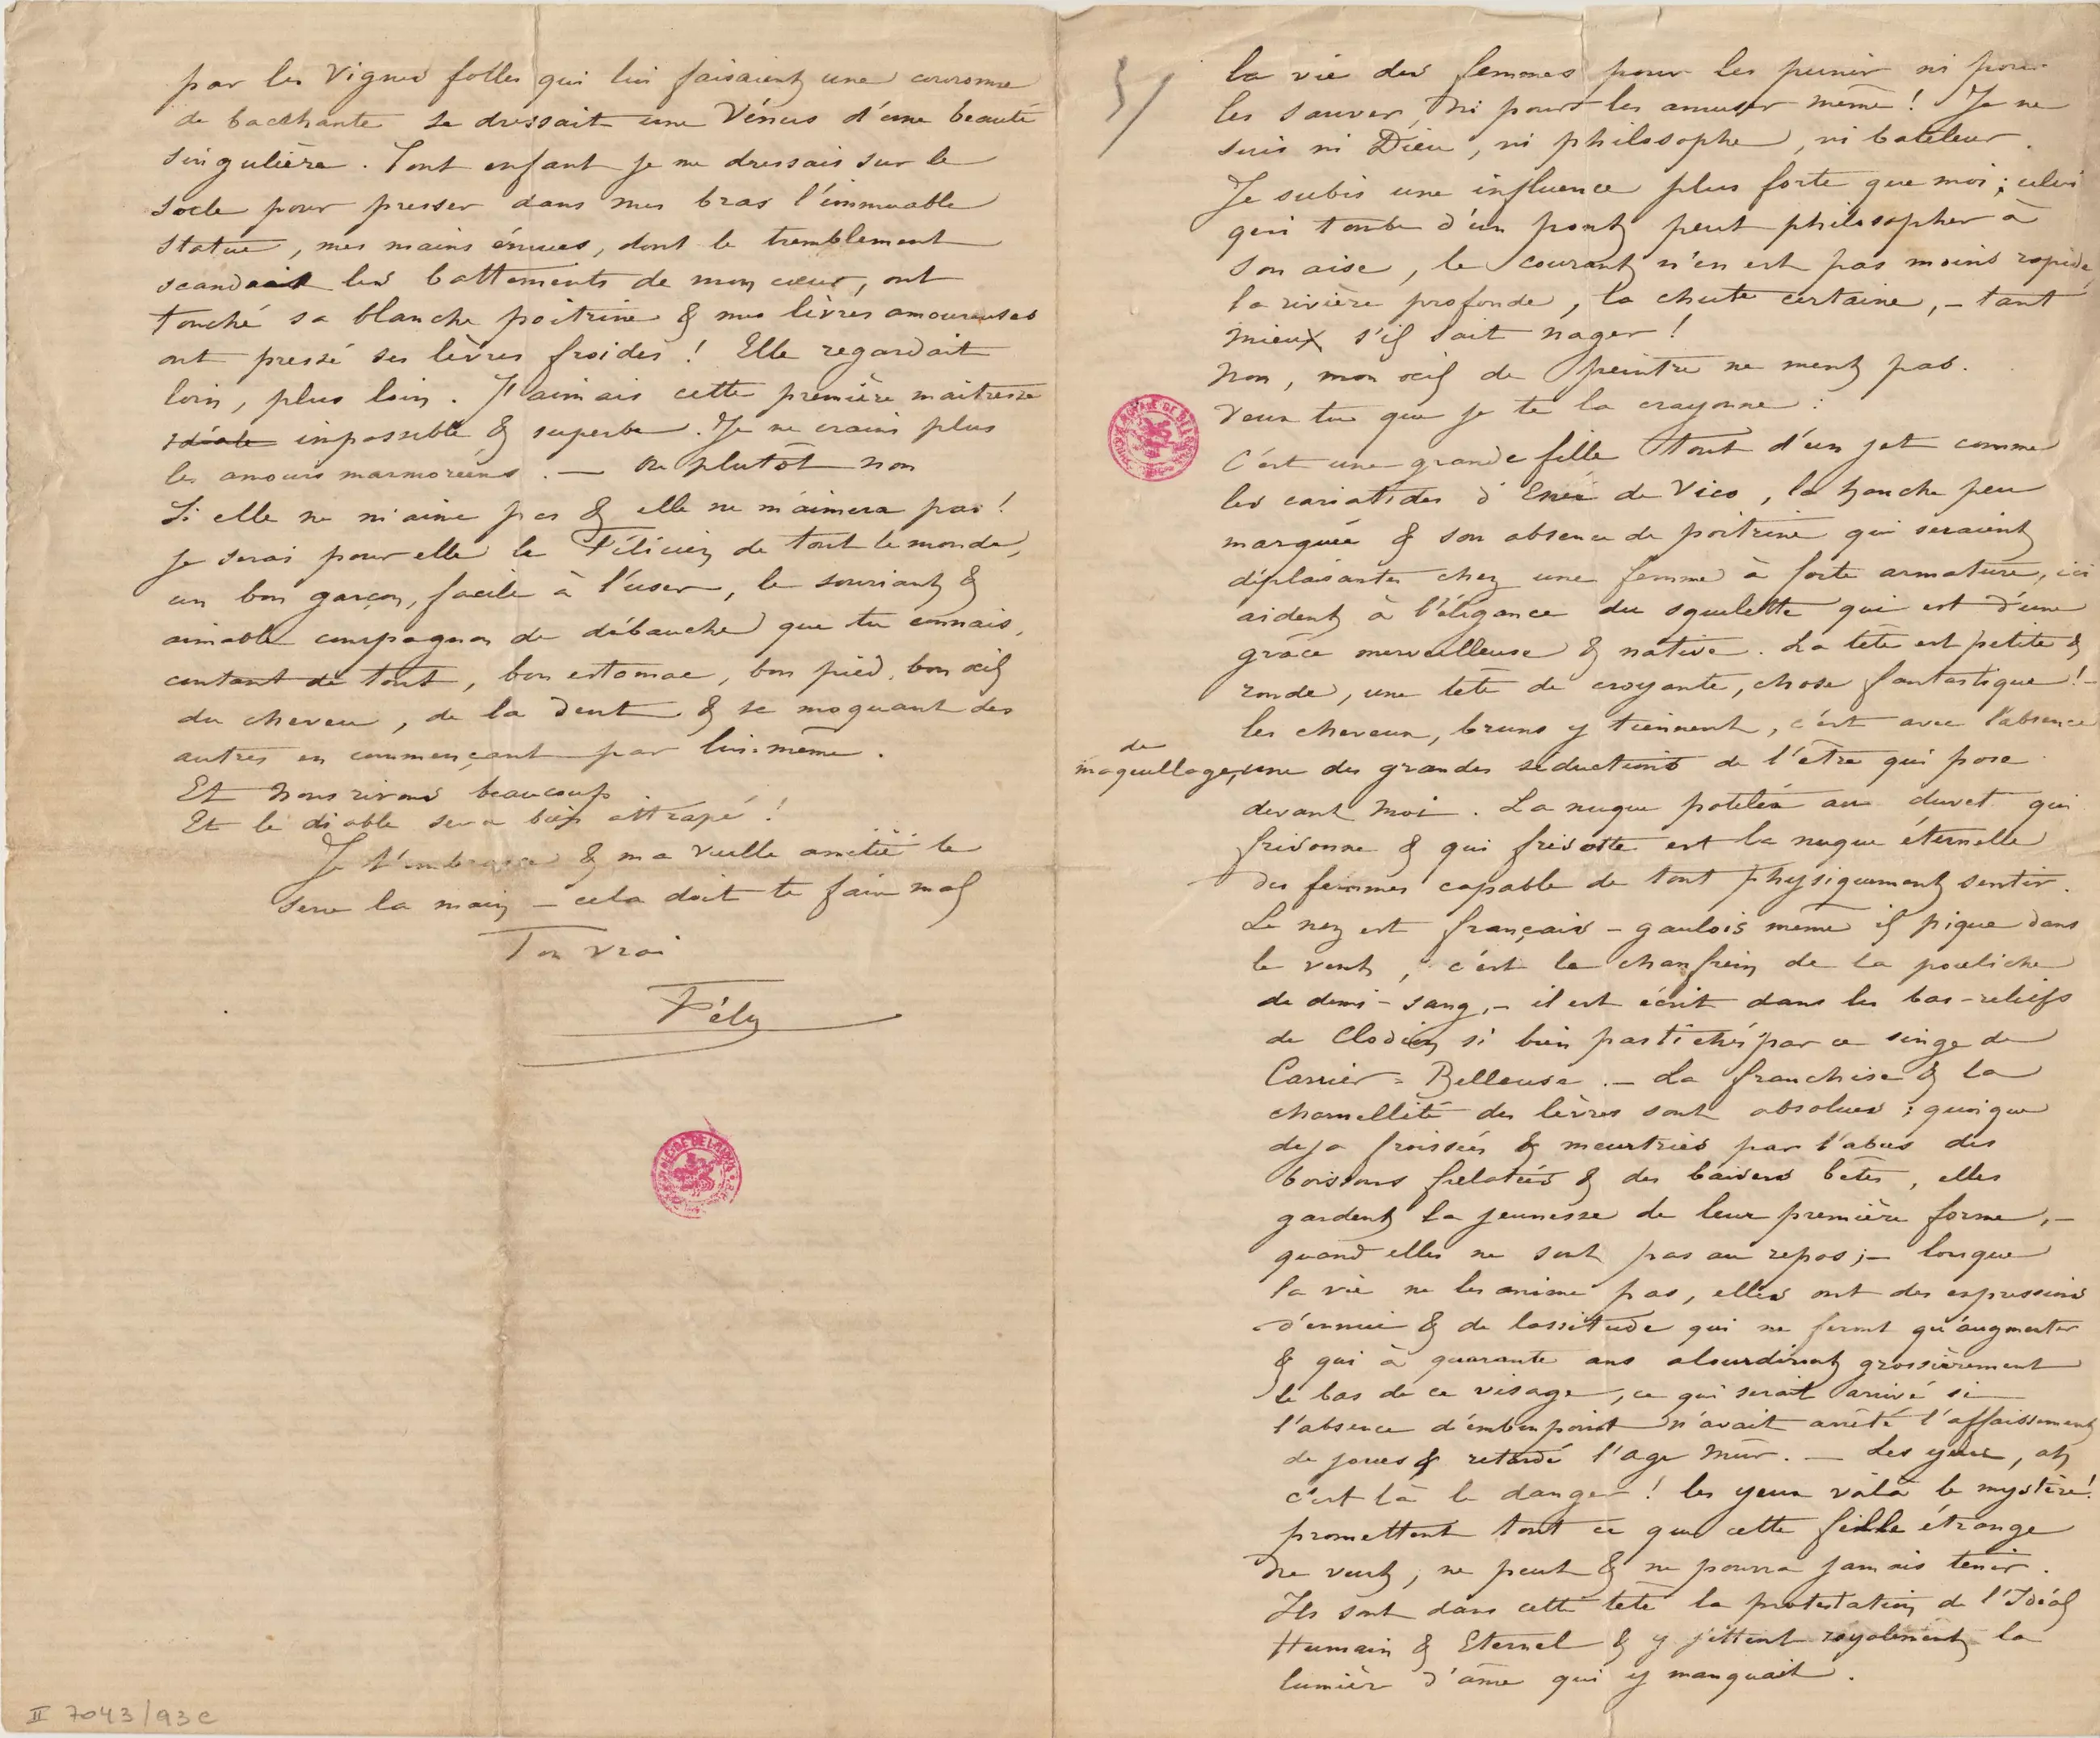 par les vignes folles qui lui faisaient une couronne
de bacchante se dressait une Vénus d'une beauté
singulière. Tout enfant je me dressais sur le
socle pour presser dans mes bras l'immuable
statue, mes mains émues, dont le tremblement
scandait les battements de mon cœur, ont
touché sa blanche poitrine & mes lèvres amoureuses
ont pressé ses lèvres froides ! Elle regardait
loin, plus loin. J'aimais cette première maitresse
idéale impossible & superbe. Je ne crains plus
les amours marmoréens. — Ou plutôt non
Si elle ne m'aime pas & elle ne m'aimera pas !
je serai pour elle le Félicien de tout le monde,
un bon garçon, facile à l'user, le souriant &
aimable compagnon de débauche que tu connais,
content de tout, bon estomac, bon pied, bon œil
du cheveu, de la dent & se moquant des
autres en commençant par lui-même.
Et nous rirons beaucoup
Et le diable sera bien attrapé !
Je t'embrasse & ma vieille amitié te
serre la main — cela doit te faire mal
Ton vrai
Fély
II 7043/93 c
5/
la vie des femmes pour les punir ni pour
les sauver, ni pour les amuser même ! Je ne
suis ni Dieu, ni philosophe, ni bateleur.
Je subis une influence plus forte que moi ; celui
qui tombe d'un pont peut philosopher à
son aise, le courant n'en est pas moins rapide,
la rivière profonde, la chute certaine, – tant
mieux s'il sait nager !
Non, mon œil de peintre ne ment pas.
Veux tu que je te la crayonne :
C'est une grande fille tout d'un jet comme
les cariatides d'Enée de Vico, la hanche peu
marquée & son absence de poitrine qui seraient
déplaisantes chez une femme à forte armature, ici
aident à l'élégance du squelette qui est d'une
grâce merveilleuse & native. La tête est petite &
ronde, une tête de croyante, chose fantastique ! –
les cheveux, bruns y tiennent, c'est avec l'absence
de
maquillage, une des grandes séductions de l'être qui pose
devant moi. La nuque potelée au duvet qui
frisonne & qui frisotte est la nuque éternelle
des femmes capable de tout physiquement sentir.
Le nez est français – gaulois même il pique dans
le vent, c'est le chanfrein de la pouliche
de demi-sang, – il est écrit dans les bas-reliefs
de Clodion si bien pastichés par ce singe de
Carrier-Belleuse. – La franchise & la
charnellité des lèvres sont absolues ; quoique
deja froissées & meurtries par l'abus des
boissons frelatées & des baisers bêtes, elles
gardent la jeunesse de leur première forme, –
quand elles ne sont pas au repos ; – lorsque
la vie ne les anime pas, elles ont des expressions
d'ennui & de lassitude qui ne feront qu'augmenter
& qui à quarante ans alourdiront grossièrement
le bas de ce visage, ce qui serait arrivé si
l'absence d'embonpoint n'avait arrêté l'affaissement
de joues & retardé l'age mûr. — Les yeux, ah
c'est là le danger ! les yeux voilà le mystère !
promettent tout ce que cette fille étrange
ne veut, ne peut & ne pourra jamais tenir.
Ils sont dans cette tête la protestation de l'Idéal
Humain & Eternel & y jettent royalement la
lumière d'âme qui y manquait.